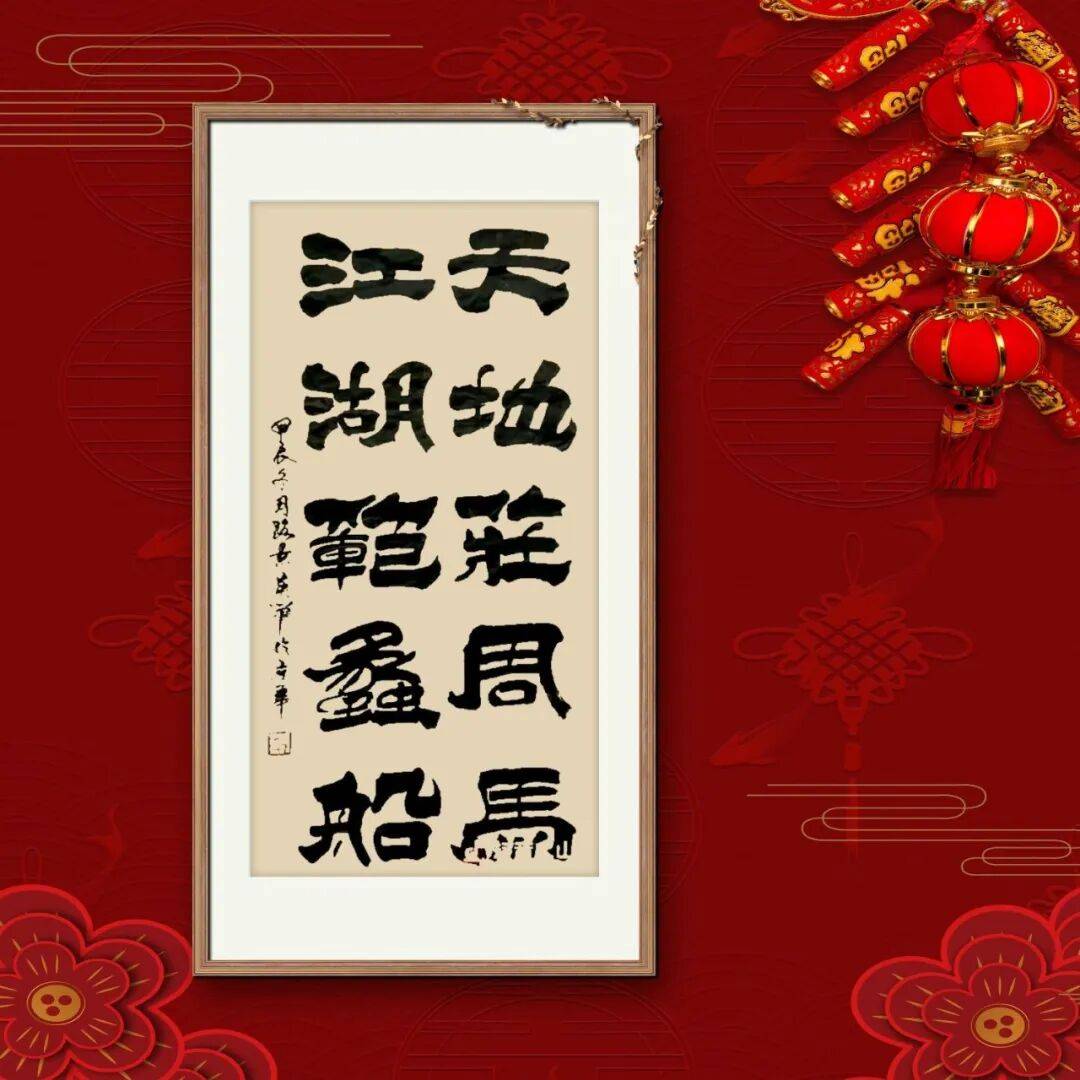 天地莊周馬
江湖範蠡船
甲辰冬月